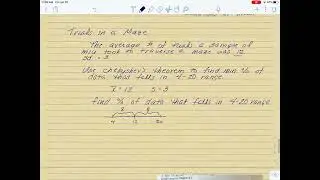 Trials in a Maze
The average # of trials a sample of
mice took to traverse a maze was 12.
sd = 3
Use Chebyshev's theorem to find min % of
data that falls in 4-20 range.
x̄ = 12 s = 3
find % of data that falls in 4-20 range
8 8
4 12 20